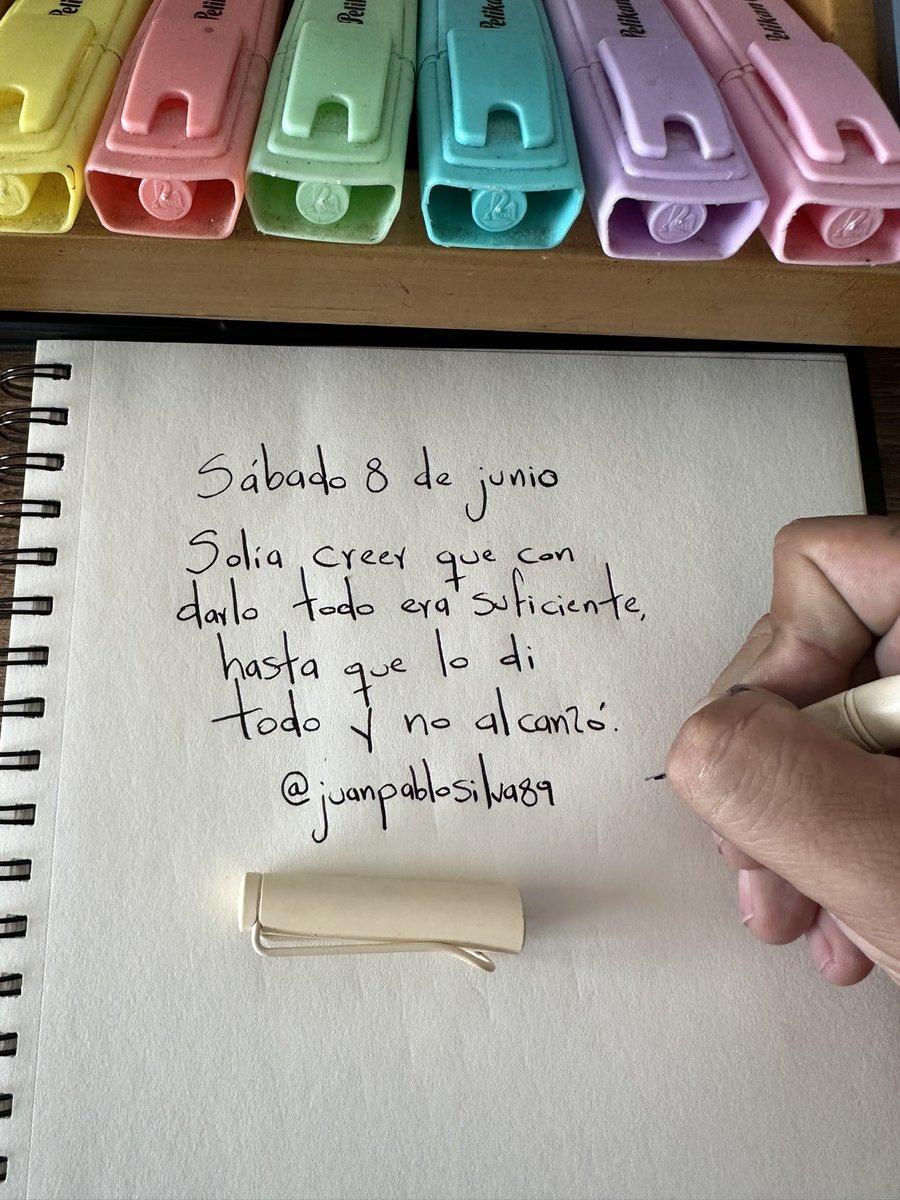 Peli
Peli
Pelik
Pelikan
Pelikan
Pelikan
Sábado 8 de junio
Solía creer que con
darlo todo era suficiente,
hasta que lo di
todo y no alcanzó.
@juanpablosilva89